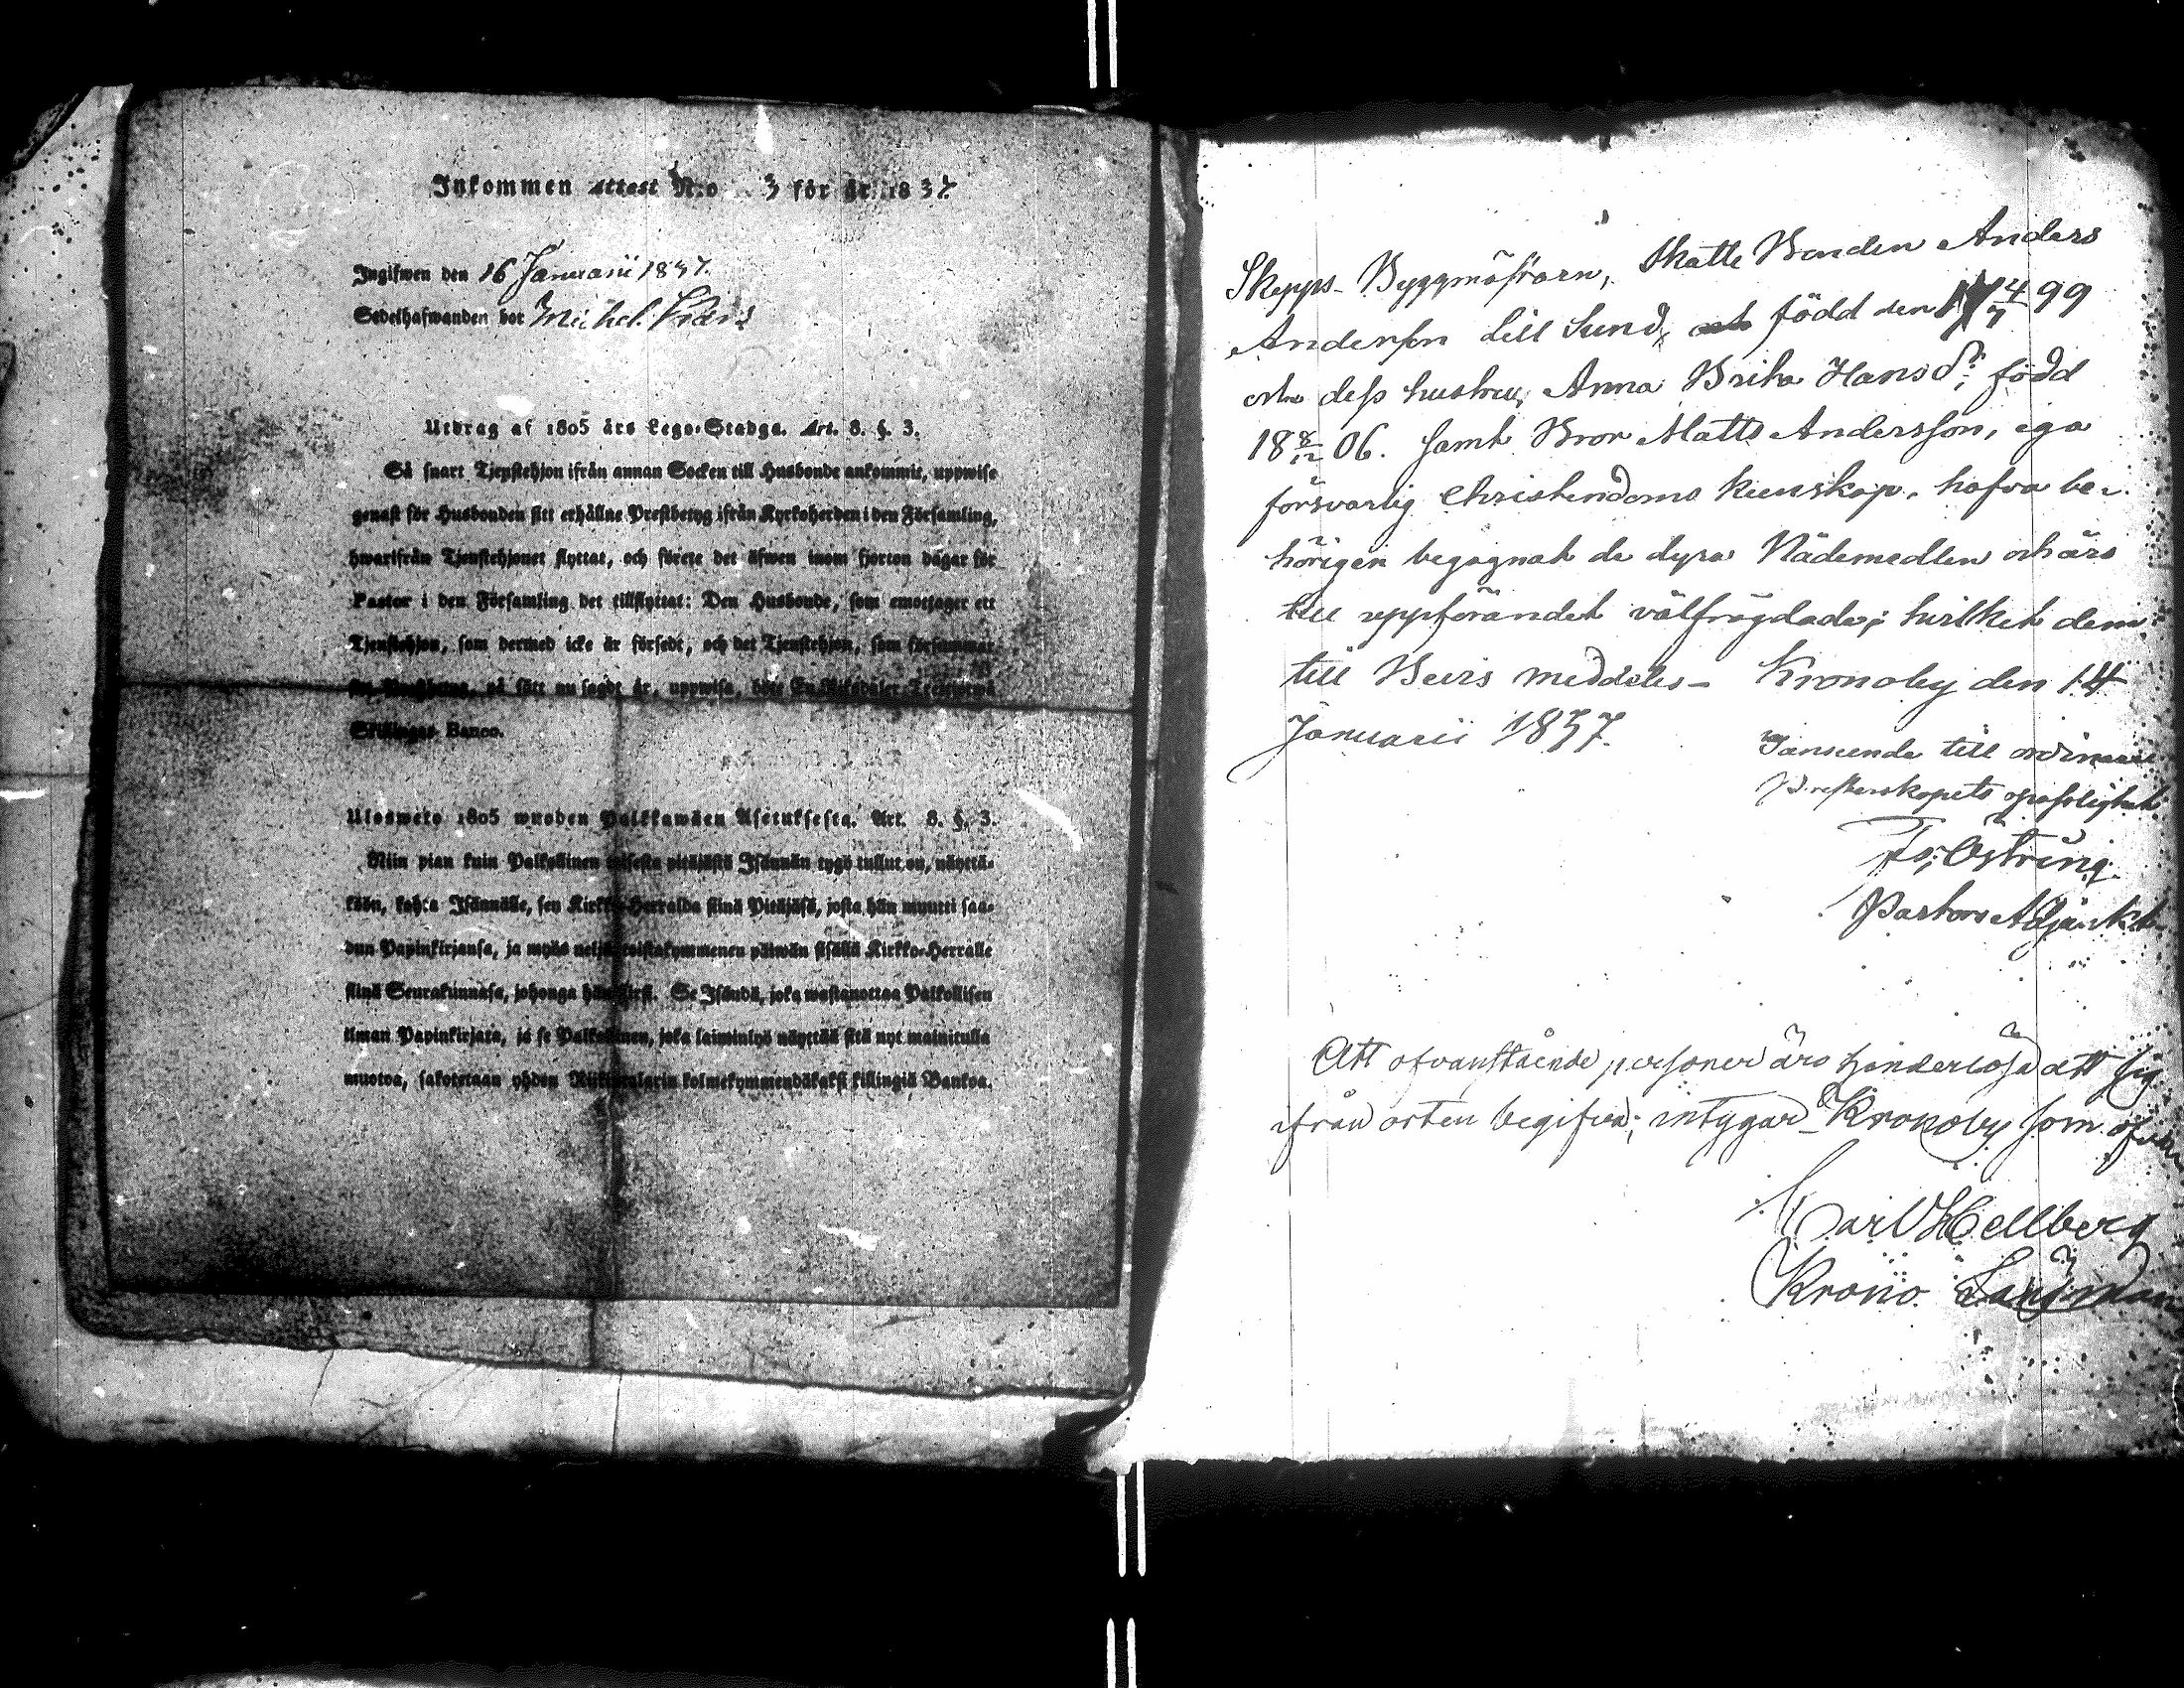 Inkommen attest N:o 3 för år 1837.
Ingifwen den 16 Januarii 1837.
Sedelhafwanden bor Michel
Utdrag af 1805 års Lego-Stadga. Art. 8. §. 3.
Så snart Tjenstehjon ifrån annan Socken till Husbonde ankommit, uppwise
genast för Husbonden sitt erhållne Prestbetyg ifrån Kyrkoherden i den Församling,
hwarifrån Tjenstehjonet flyttat, och förete det äfwen inom fjorton dagar för
Pastor i den Församling det tillflyttat: Den Husbonde, som emottager ett
Tjenstehjon, som dermed icke är försedt, och det Tjenstehjon, som försummar
på sätt nu sagdt är, uppwisa, böte En Riksdaler Trettiotwå
Skillingar Banco.
Ulosweto 1805 wuoden Palkkawäen Asetuksesta. Art. 8. §. 3.
Niin pian kuin Palkollinen toisesta pitäjästä Isännän tygö tullut on, näyttä-
köön, kohta Isännälle, sen Kirkko-Herralda siinä Pitäjäsä, josta hän muutti saa-
dun Papinkirjansa, ja myös neljäntoistakymmenen päiwän sisällä Kirkko-Herralle
siinä Seurakunnasa, johonga hän siirsi. Se Isändä, joka wastanottaa Palkollisen
ilman Papinkirjata, ja se Palkollinen, joka laiminlyö näyttää sitä nyt mainitulla
muotoa, sakotetaan yhden Riikintalarin kolmekymmendäkaksi killingiä Bankoa.
Skepps-Byggmästarn, Skatte Bonden Anders
Andersson till Sund, född den 4/7 99
och dess hustru, Anna Brita Hansd:r, född
18 8/12 06. samt Bror Matts Andersson, ega
försvarlig Christendoms kunskap, hafva be-
hörigen begagnat de dyra Nådemedlen och äro
till uppförandet välfrägdade; hvilket dem
till Bevis meddeles - Kronoby den 14
Januarii 1837.
Tjänande till ordinarie
Presterskapets
Östring.
Pastors Adjunkt.
Att ofvanstående personer äro hinderlösa att sig
ifrån orten begifva; intygar Kronoby som ofvan
Carl Hellberg
Krono Länsman